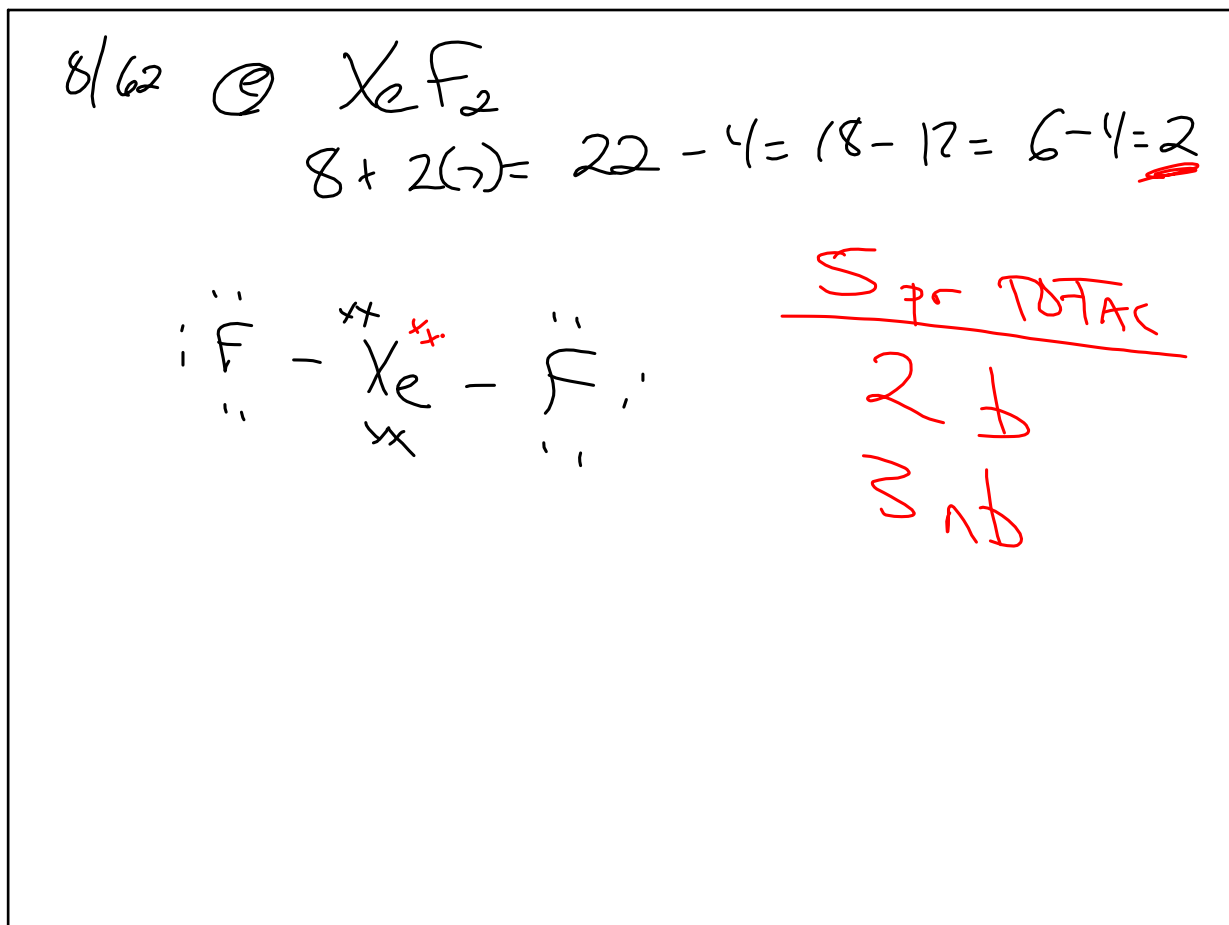 8/62 ⓔ XeF₂
8 + 2(7) = 22 - 4 = 18 - 12 = 6 - 4 = 2
:F - Xe - F:
5 pr TOTAL
2 b
3 nb